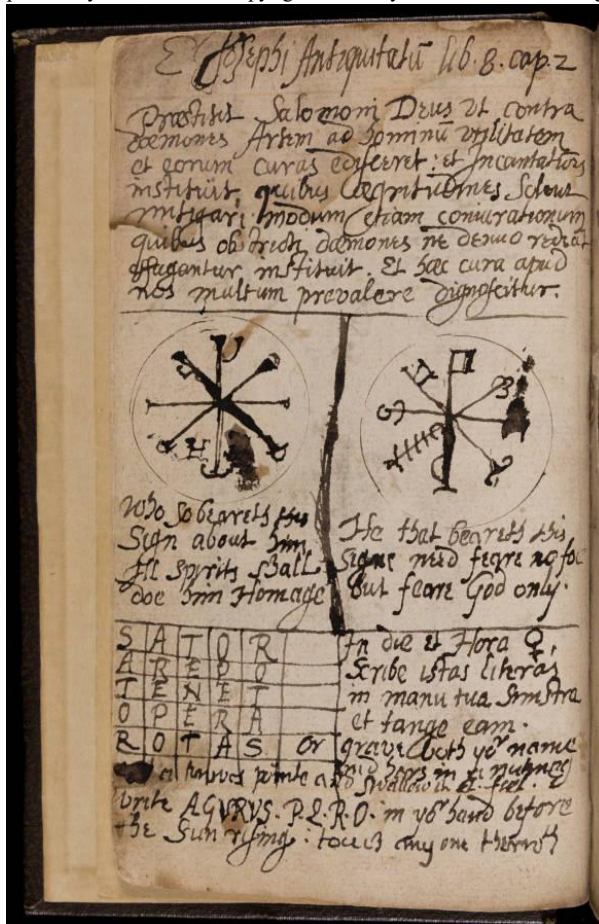 Josephi Antiquitatū lib. 8. cap. 2
Præstitit Salomoni Deus ut contra
dæmones Artem ad hominū utilitatem
et eorum curas edisceret: et Incantationes
instituit, quibus Ægritudines solent
mitigari, modum etiam coniurationum
quibus obstricti dæmones ne denuo redeāt
effugantur instituit. Et hæc cura apud
nos multum prevalere dignoscitur.
Who so beareth this
Sign about him
All spirits shall
doe him Homage
He that beareth this
Signe need feare no foe
but feare God only.
S A T O R
A R E P O
T E N E T
O P E R A
R O T A S or
In die et Hora ♀,
Scribe istas literas
in manu tua Sinistra
et tange eam.
grave both yor name
and hers in a nutmeg
pointe and swallow it
write AGVRVS. P.L.R.O. in yor hand before
the Sun rysing: touch any one therwth